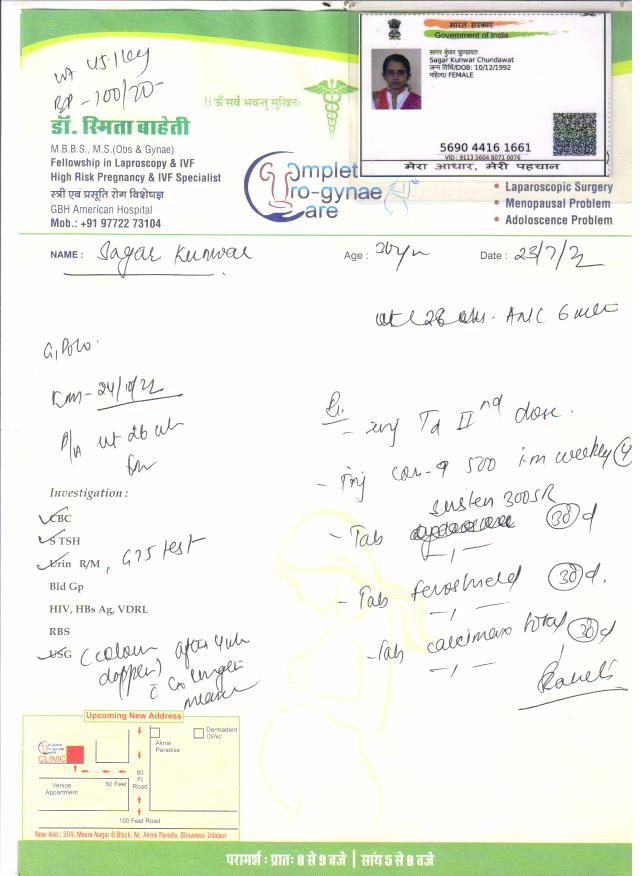 wt 45.1 kg
BP - 100/70
!! ॐ सर्वे भवन्तु सुखिनः
डॉ. स्मिता बाहेती
M.B.B.S., M.S.(Obs & Gynae)
Fellowship in Laproscopy & IVF
High Risk Pregnancy & IVF Specialist
स्त्री एवं प्रसूति रोग विशेषज्ञ
GBH American Hospital
Mob.: +91 97722 73104
भारत सरकार
Government of India
सागर कुंवर चुण्डावत
Sagar Kunwar Chundawat
जन्म तिथि/DOB: 10/12/1992
महिला/ FEMALE
5690 4416 1661
VID : 9113 5604 8071 0076
मेरा आधार, मेरी पहचान
Complete
Uro-gynae
Care
• Laparoscopic Surgery
• Menopausal Problem
• Adoloscence Problem
NAME : Sagar Kunwar
Age : 30yrs
Date : 23/7/22
28 ANC
G1P0L0
24/10/22
P/A ut 26 wk
Investigation :
CBC
S TSH
Urin R/M, G75 test
Bld Gp
HIV, HBs Ag, VDRL
RBS
USG (colour doppler) after 4 wk
c Cx length
Rx
- inj Td IInd dose.
- Inj 500 i.m weekly (4
susten 300SR
- Tab 30 d
- Tab feroshield 30 d.
- Tab calcimax total 30 d
Upcoming New Address
Complete Uro-gynae Care
CLINIC
Akme Paradise
Dermadent Clinic
Venice Appartment
60 Feet
80 Ft Road
100 Feet Road
New Add.: 304, Meera Nagar-B Block, Nr. Akme Paradie, Bhuwana, Udaipur
परामर्श : प्रातः 8 से 9 बजे | सांय 5 से 8 बजे